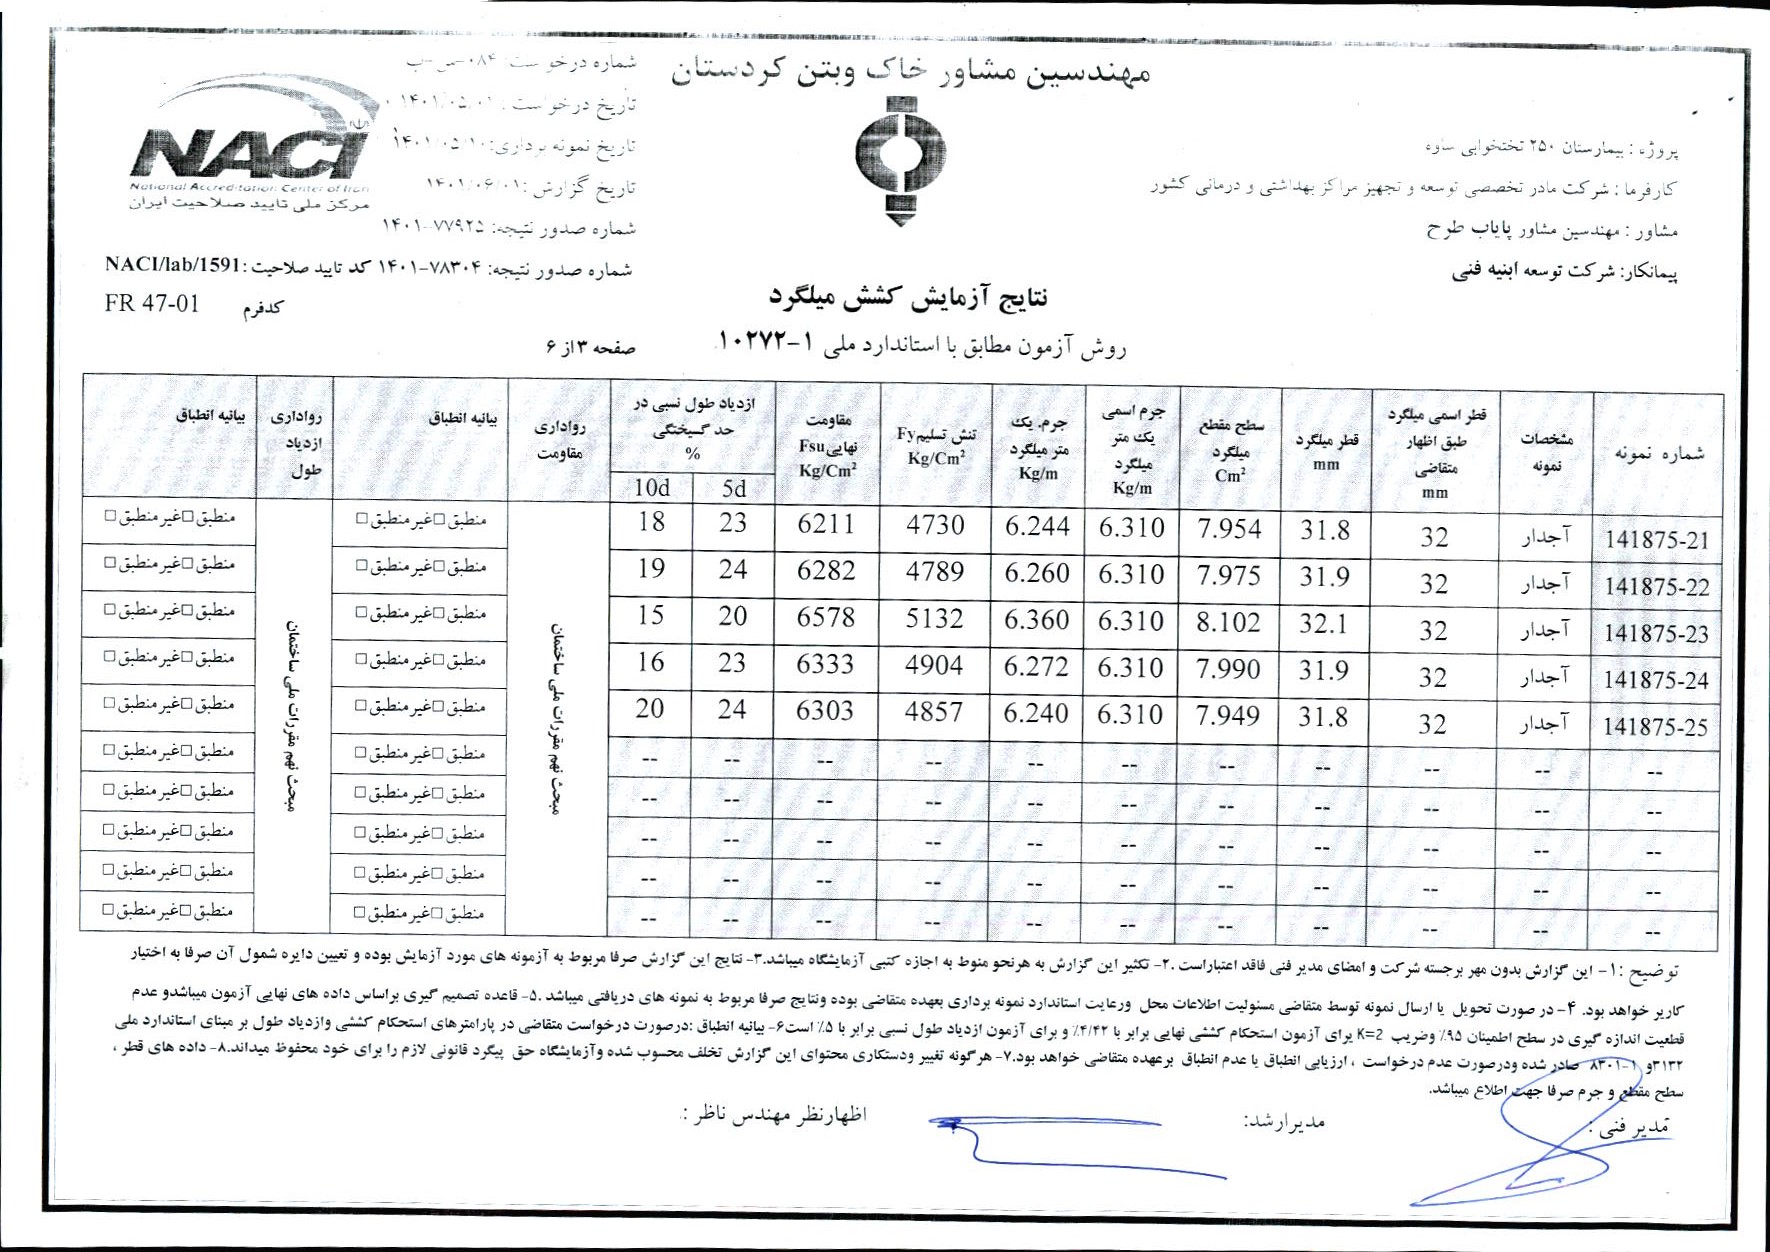 مهندسین مشاور خاک وبتن کردستان
پروژه : بیمارستان ۲۵۰ تختخوابی ساوه
کارفرما : شرکت مادر تخصصی توسعه و تجهیز مراکز بهداشتی و درمانی کشور
مشاور : مهندسین مشاور پایاب طرح
پیمانکار: شرکت توسعه ابنیه فنی
شماره درخواست: ۰۸۴-س-ب
تاریخ درخواست : ۱۴۰۱/۰۵/۰۱
تاریخ نمونه برداری: ۱۴۰۱/۰۵/۱۰
تاریخ گزارش : ۱۴۰۱/۰۶/۰۱
شماره صدور نتیجه: ۷۷۹۲۵-۱۴۰۱
شماره صدور نتیجه: ۷۸۳۰۴-۱۴۰۱ کد تایید صلاحیت :NACI/lab/1591
کدفرم FR 47-01
NACI
National Accreditation Center of Iran
مرکز ملی تایید صلاحیت ایران
نتایج آزمایش کشش میلگرد
روش آزمون مطابق با استاندارد ملی ۱-۱۰۲۷۲
صفحه ۳ از ۶
شماره نمونه | مشخصات نمونه | قطر اسمی میلگرد طبق اظهار متقاضی mm | قطر میلگرد mm | سطح مقطع میلگرد Cm² | جرم اسمی یک متر میلگرد Kg/m | جرم. یک متر میلگرد Kg/m | تنش تسلیم Fy Kg/Cm² | مقاومت نهایی Fsu Kg/Cm² | ازدیاد طول نسبی در حد گسیختگی % 5d 10d | رواداری مقاومت | بیانیه انطباق | رواداری ازدیاد طول | بیانیه انطباق
141875-21 آجدار 32 31.8 7.954 6.310 6.244 4730 6211 23 18 منطبق□غیرمنطبق□ منطبق□غیرمنطبق□
141875-22 آجدار 32 31.9 7.975 6.310 6.260 4789 6282 24 19 منطبق□غیرمنطبق□ منطبق□غیرمنطبق□
141875-23 آجدار 32 32.1 8.102 6.310 6.360 5132 6578 20 15 منطبق□غیرمنطبق□ منطبق□غیرمنطبق□
141875-24 آجدار 32 31.9 7.990 6.310 6.272 4904 6333 23 16 منطبق□غیرمنطبق□ منطبق□غیرمنطبق□
141875-25 آجدار 32 31.8 7.949 6.310 6.240 4857 6303 24 20 منطبق□غیرمنطبق□ منطبق□غیرمنطبق□
-- -- -- -- -- -- -- -- -- -- -- منطبق□غیرمنطبق□ منطبق□غیرمنطبق□
-- -- -- -- -- -- -- -- -- -- -- منطبق□غیرمنطبق□ منطبق□غیرمنطبق□
-- -- -- -- -- -- -- -- -- -- -- منطبق□غیرمنطبق□ منطبق□غیرمنطبق□
-- -- -- -- -- -- -- -- -- -- -- منطبق□غیرمنطبق□ منطبق□غیرمنطبق□
-- -- -- -- -- -- -- -- -- -- -- منطبق□غیرمنطبق□ منطبق□غیرمنطبق□
مبحث نهم مقررات ملی ساختمان
مبحث نهم مقررات ملی ساختمان
توضیح :۱- این گزارش بدون مهر برجسته شرکت و امضای مدیر فنی فاقد اعتباراست .۲- تکثیر این گزارش به هرنحو منوط به اجازه کتبی آزمایشگاه میباشد.۳- نتایج این گزارش صرفا مربوط به آزمونه های مورد آزمایش بوده و تعیین دایره شمول آن صرفا به اختیار
کاربر خواهد بود. ۴- در صورت تحویل یا ارسال نمونه توسط متقاضی مسئولیت اطلاعات محل ورعایت استاندارد نمونه برداری بعهده متقاضی بوده ونتایج صرفا مربوط به نمونه های دریافتی میباشد .۵- قاعده تصمیم گیری براساس داده های نهایی آزمون میباشدو عدم
قطعیت اندازه گیری در سطح اطمینان ۹۵٪ وضریب K=2 برای آزمون استحکام کششی نهایی برابر با ۴/۴۲٪ و برای آزمون ازدیاد طول نسبی برابر با ۵٪ است۶- بیانیه انطباق :درصورت درخواست متقاضی در پارامترهای استحکام کششی وازدیاد طول بر مبنای استاندارد ملی
۳۱۳۲و ۱-۸۳۰۱ صادر شده ودرصورت عدم درخواست ، ارزیابی انطباق یا عدم انطباق برعهده متقاضی خواهد بود.۷- هرگونه تغییر ودستکاری محتوای این گزارش تخلف محسوب شده وآزمایشگاه حق پیگرد قانونی لازم را برای خود محفوظ میداند.۸- داده های قطر ،
سطح مقطع و جرم صرفا جهت اطلاع میباشد.
مدیر فنی :
مدیرارشد:
اظهارنظر مهندس ناظر :